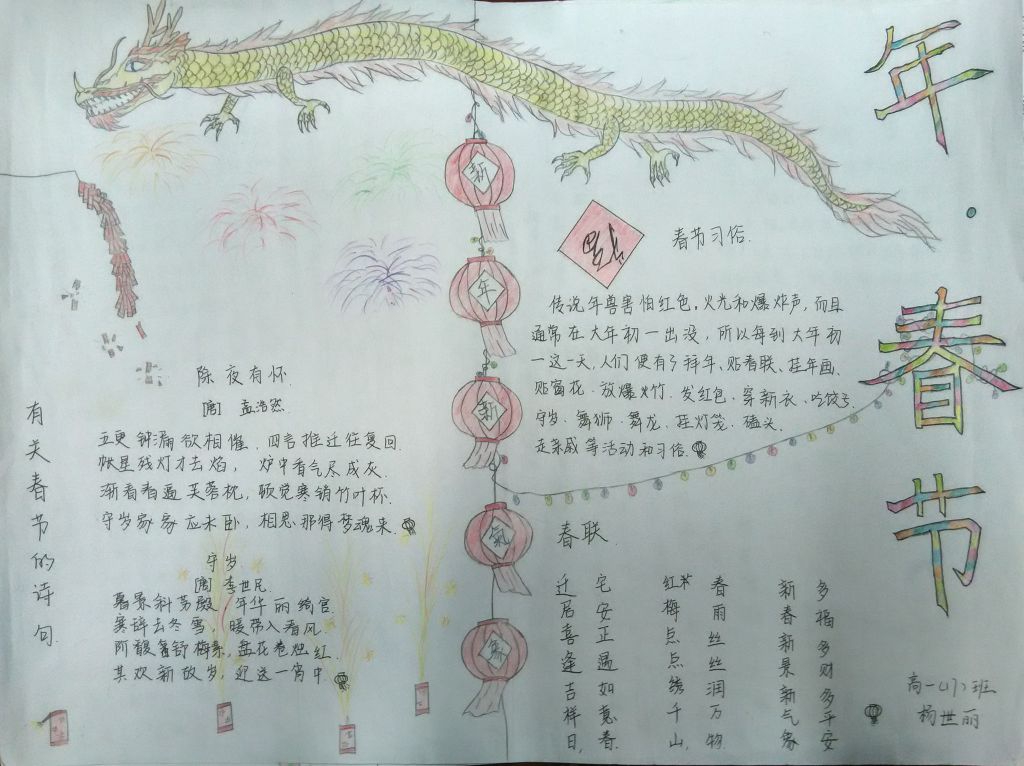 年·春节
新年新氣象
福
春节习俗
传说年兽害怕红色,火光和爆炸声,而且
通常在大年初一出没,所以每到大年初
一这一天,人们便有了拜年、贴春联、挂年画、
贴窗花、放爆竹、发红包、穿新衣、吃饺子、
守岁、舞狮、舞龙、挂灯笼、磕头、
走亲戚等活动和习俗。
有关春节的诗句
除夜有怀
[唐] 孟浩然
五更钟漏欲相催,四气推迁往复回.
帐里残灯才去焰,炉中香气尽成灰.
渐看春逼芙蓉枕,顿觉寒销竹叶杯.
守岁家家应未卧,相思那得梦魂来.
守岁
[唐] 李世民
暮景斜芳殿,年华丽绮宫.
寒辞去冬雪,暖带入春风.
阶馥舒梅素,盘花卷烛红.
共欢新故岁,迎送一宵中.
春联
迁居喜逢吉样日,
宅安正遇如意春.
红梅点点绣千山,
春雨丝丝润万物.
新春新景新气象
多福多财多平安
高一(17)班
杨世丽